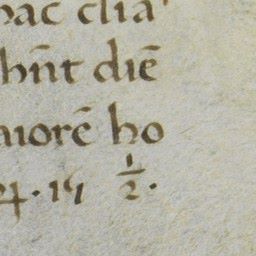 hac clia
hn̄t diē
aiorē ho
24 · 19 1/2 ·